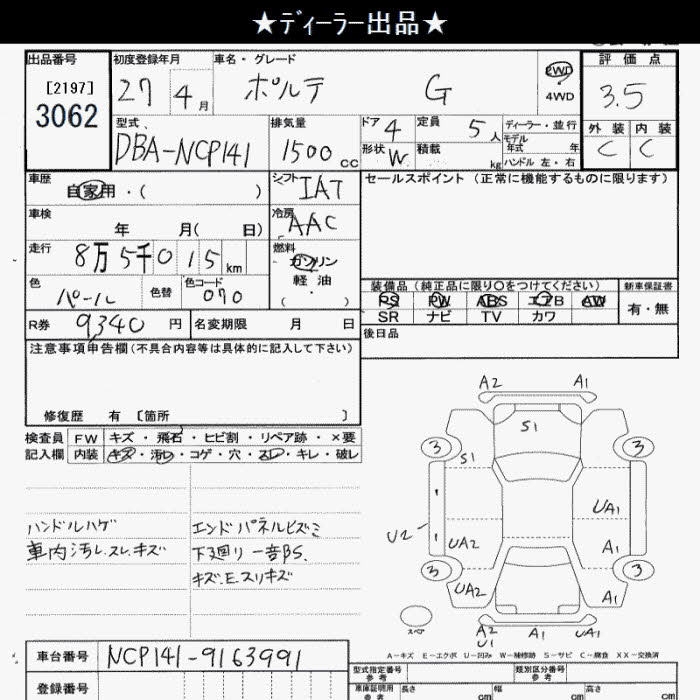 ★ディーラー出品★
出品番号 初度登録年月 車名・グレード 評価点
[2197] 27 4月 ポルテ G 2WD 3.5
3062 4WD
型式 排気量 ドア 4 定員 5人 ディーラー・並行 外装 内装
DBA-NCP141 1500cc 形状 W 積載 kg モデル年式 年 C C
ハンドル左・右
車歴 自家用・( ) シフト IAT セールスポイント (正常に機能するものに限ります)
車検 年 月( 日) 冷房 AAC
走行 8万5千015km 燃料 ガソリン
軽油
( )
色 パール 色替 色コード 070 装備品 (純正品に限り○をつけてください) 新車保証書
PS PW ABS エアB AW 有・無
R券 9,340円 名変期限 月 日 SR ナビ TV カワ
注意事項申告欄(不具合内容等は具体的に記入して下さい) 後日品
修復歴 有 [箇所 ]
検査員 FW キズ・飛石・ヒビ割・リペア跡・×要
記入欄 内装 キズ・汚レ・コゲ・穴・スレ・キレ・破レ
ハンドルハゲ エンドパネルヒズミ
車内汚レ.スレ.キズ 下廻り一部S.
キズ.E.スリキズ
A2 A1
S1
3 3
S1
UA1
U2 UA2 A1
3 3
UA2 A1
スペア
A2 A1 UA1
U1
A-キズ E-エクボ U-凹み W-補修跡 S-サビ C-腐食 XX-交換済
車台番号 NCP141-9163991 型式指定番号 参考 類別区分番号 参考
登録番号 車庫証明用 参考 長さ cm 幅 cm 高さ cm